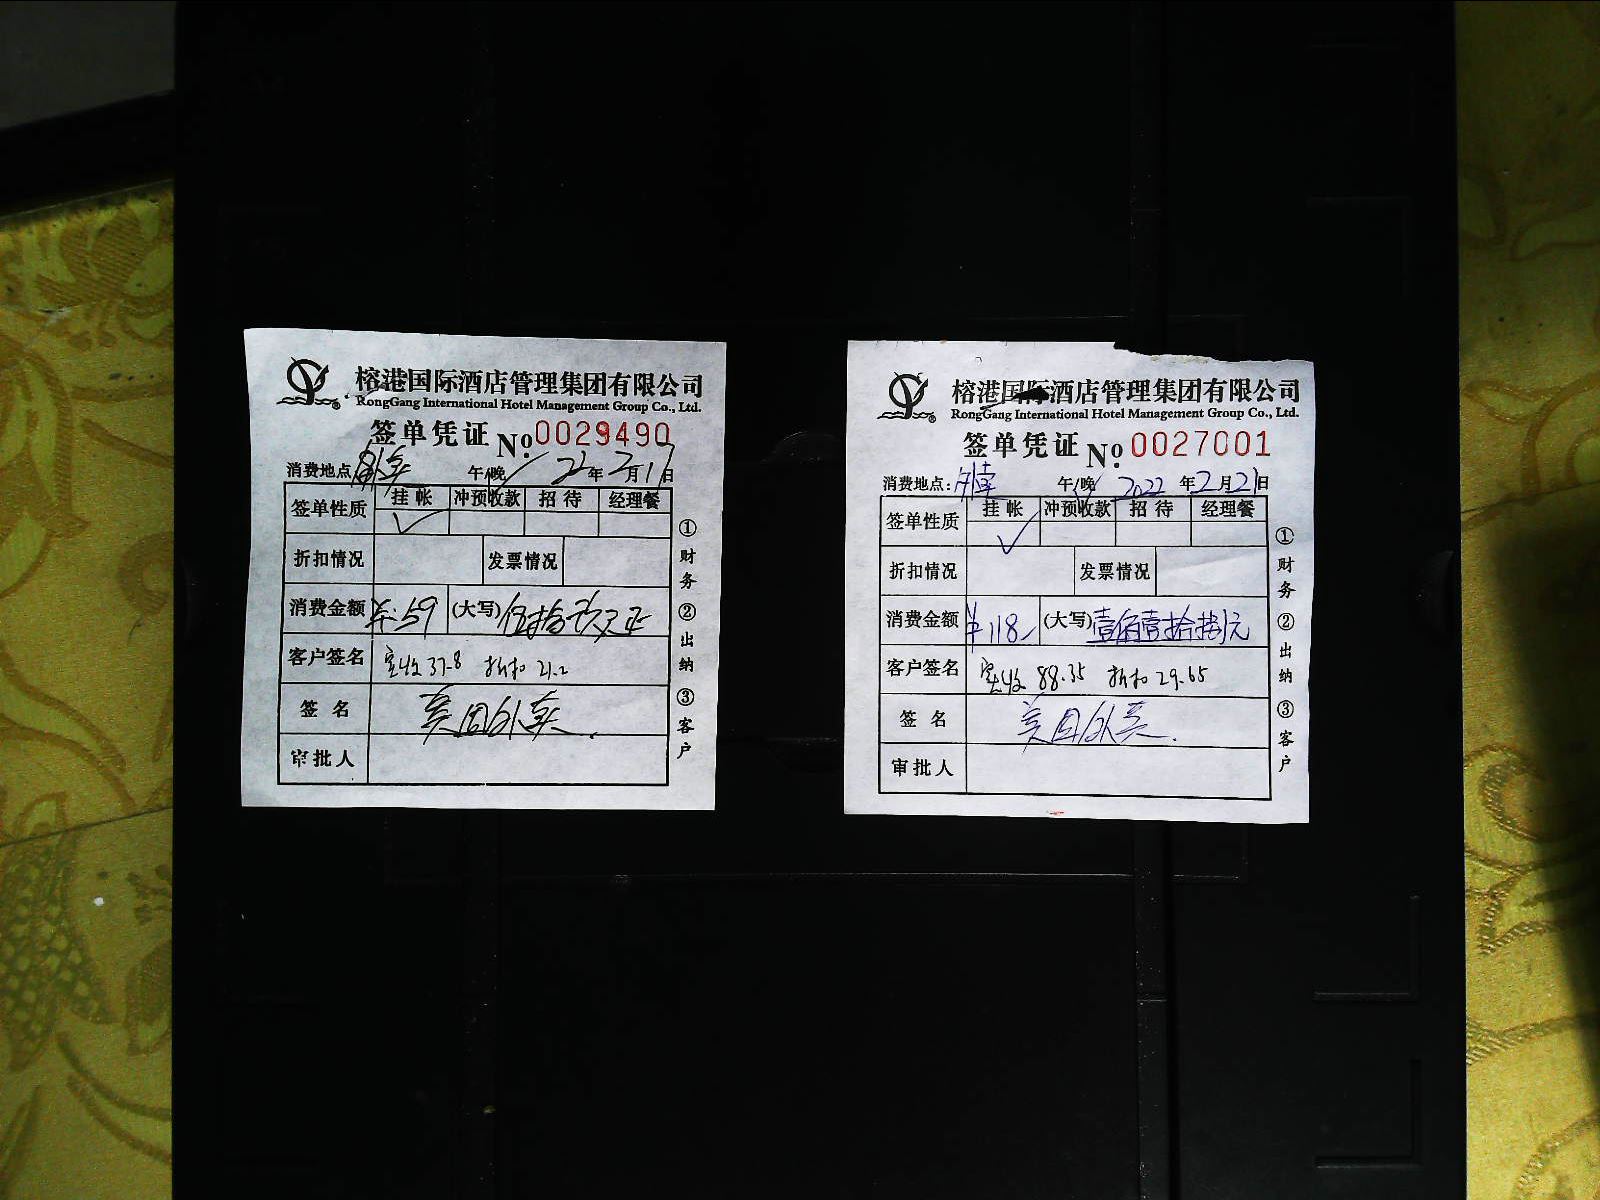 榕港国际酒店管理集团有限公司
RongGang International Hotel Management Group Co., Ltd.
签单凭证 No. 0029490
消费地点 外卖 午/晚 22年2月17日
签单性质 挂帐 冲预收款 招待 经理餐
✓
折扣情况 发票情况
消费金额 ¥:59 (大写) 伍拾玖元正
客户签名 实收 37.8 折扣 21.2
签名 美团外卖.
审批人
①财务 ②出纳 ③客户
榕港国际酒店管理集团有限公司
RongGang International Hotel Management Group Co., Ltd.
签单凭证 No. 0027001
消费地点: 外卖 午/晚 2022年2月21日
签单性质 挂帐 冲预收款 招待 经理餐
✓
折扣情况 发票情况
消费金额 ¥118- (大写) 壹佰壹拾捌元
客户签名 实收 88.35 折扣 29.65
签名 美团外卖.
审批人
①财务 ②出纳 ③客户